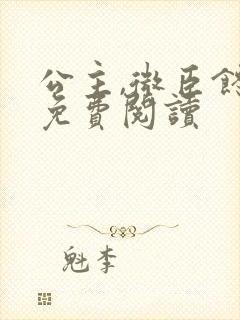 公主,微臣
免費閱讀
魁李